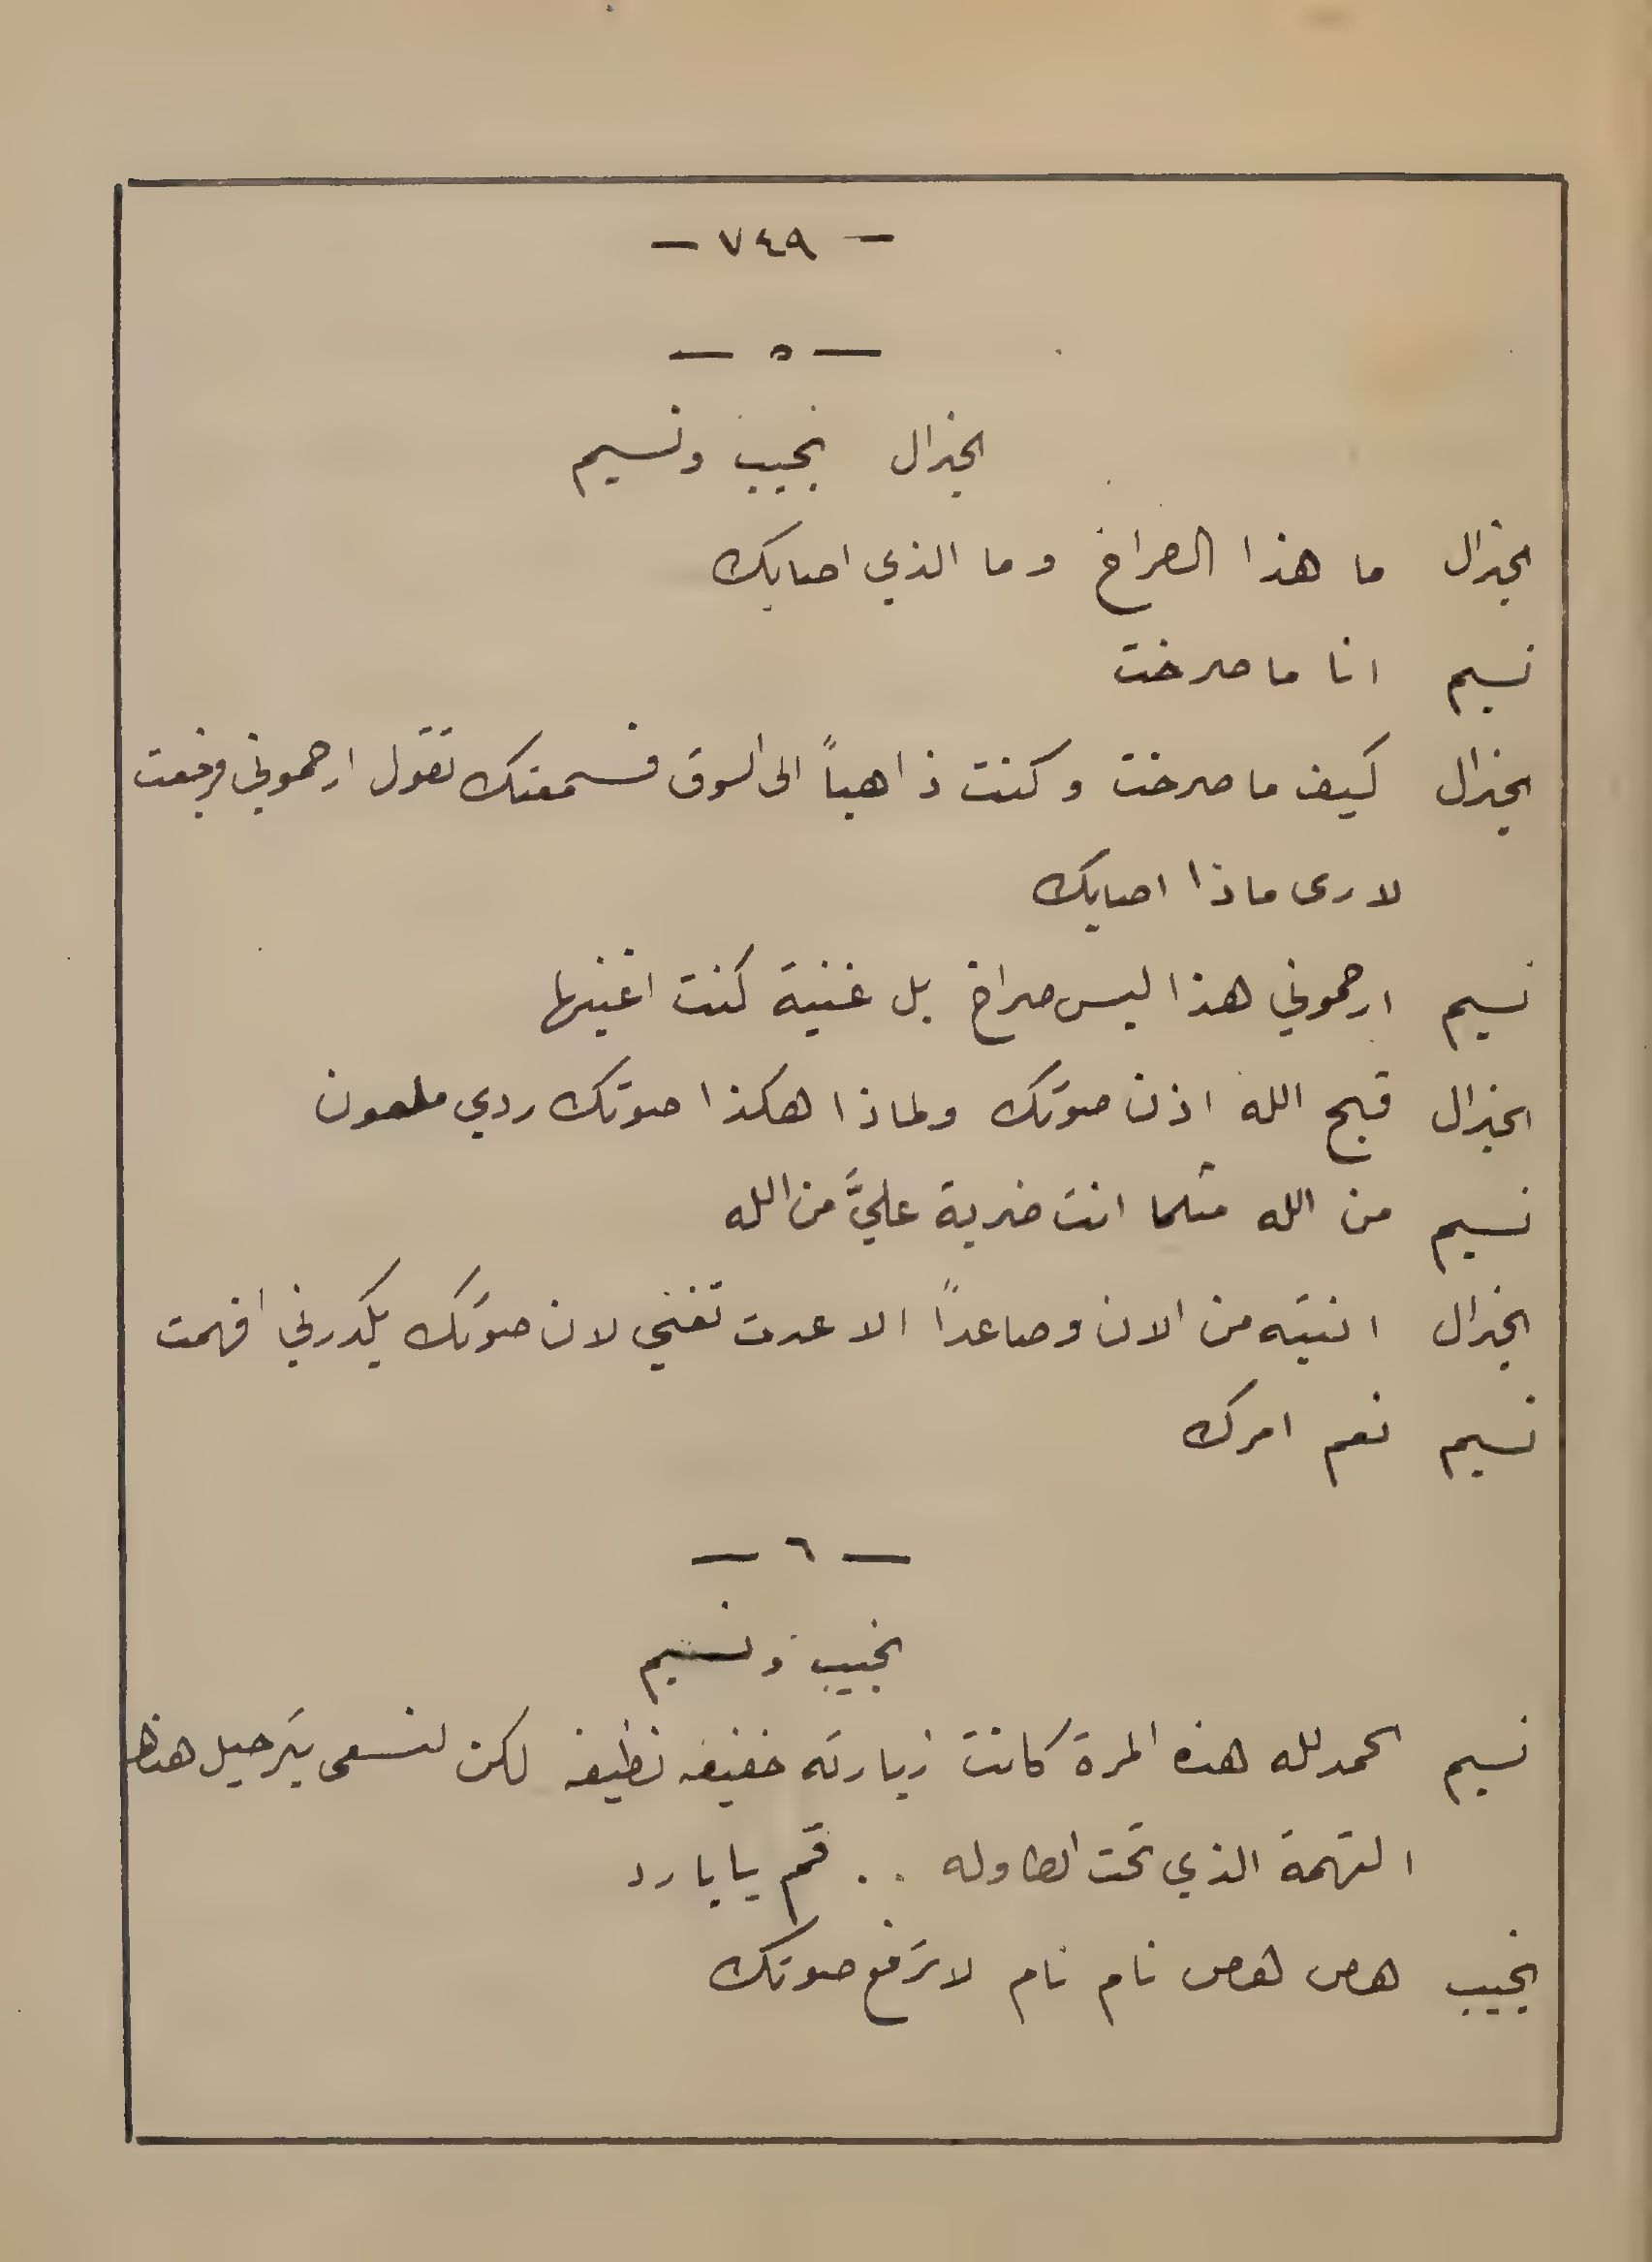 — ٧٤٩ —
— ٥ —
الجنرال نجيب ونسيم
الجنرال ما هذا الصراخ وما الذي اصابك
نسيم انا ما صرخت
الجنرال كيف ما صرخت وكنت ذاهباً الى السوق فسمعتك تقول ارحموني فرجعت
لارى ماذا اصابك
نسيم ارحموني هذا ليس صراخ بل غنية كنت اغنيها
الجنرال قبح الله اذن صوتك ولماذا هكذا صوتك ردي ملعون
نسيم من الله مثلما انت ضربة عليَّ من الله
الجنرال انتبه من الان وصاعداً الا عدت تغني لان صوتك يكدرني افهمت
نسيم نعم امرك
— ٦ —
نجيب ونسيم
نسيم الحمدلله هذه المرة كانت زيارته خفيفه نظيفه لكن لنسعى بترحيل هذا
التهمة الذي تحت الطاوله .. قم يا بارد
نجيب هص هص نام نام لا ترفع صوتك